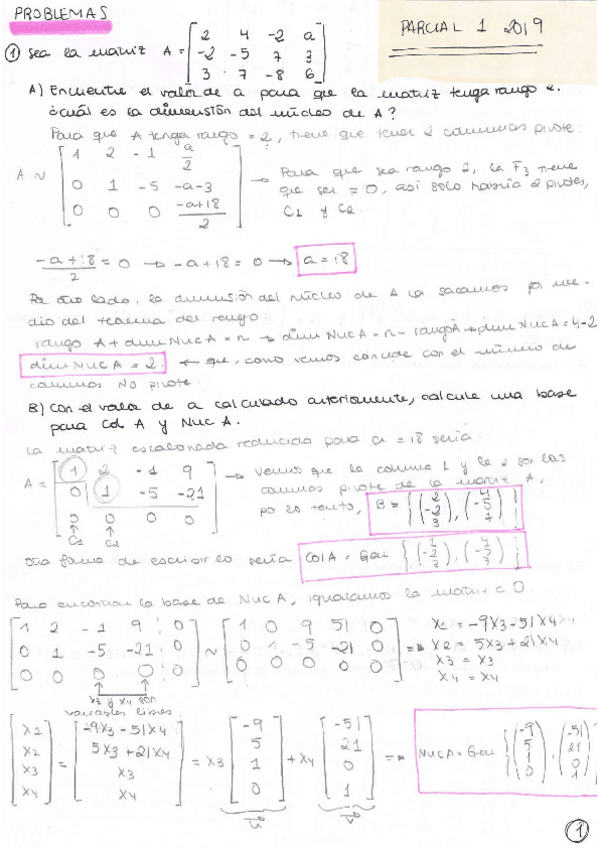 PROBLEMAS
PARCIAL 1 2019
① Sea la matriz A = [ 2 4 -2 a
-2 -5 7 3
3 7 -8 6 ]
A) Encuentre el valor de a para que la matriz tenga rango 2.
¿cuál es la dimensión del núcleo de A?
Para que A tenga rango = 2, tiene que tener 2 columnas pivote:
A ~ [ 1 2 -1 a/2
0 1 -5 -a-3
0 0 0 (-a+18)/2 ]
→ Para que sea rango 2, la F3 tiene
que ser = 0, así solo habría 2 pivotes,
C1 y C2.
(-a+18)/2 = 0 → -a+18 = 0 → a = 18
Por otro lado, la dimensión del núcleo de A la sacamos por me-
dio del teorema del rango
rango A + dim Nuc A = n → dim Nuc A = n - rango A → dim Nuc A = 4-2
dim Nuc A = 2. ← que, como vemos coincide con el número de
columnas NO pivote.
B) Con el valor de a calculado anteriormente, calcule una base
para Col A y Nuc A.
La matriz escalonada reducida para a = 18 sería:
A = [ 1 2 -1 9
0 1 -5 -21
0 0 0 0 ]
C1 C2
→ Vemos que la columna 1 y la 2 son las
columnas pivote de la matriz A,
por lo tanto, B = { (2 -2 3), (4 -5 7) }
Otra forma de escribirlo sería Col A = Gen { ( -2 3), (4 -5 7) }
Para encontrar la base de Nuc A, igualamos la matriz a 0
[ 1 2 -1 9 0
0 1 -5 -21 0
0 0 0 0 0 ]
~ [ 1 0 9 51 0
0 1 -5 -21 0
0 0 0 0 0 ]
⇒ x1 = -9x3 - 51x4
x2 = 5x3 + 21x4
x3 = x3
x4 = x4
x3 y x4 son
variables libres
[ x1 x2 x3 x4 ] = [ -9x3 - 51x4
5x3 + 21x4
x3
x4 ]
= x3 [ -9 5 1 0 ] + x4 [ -51 21 0 1 ] ⇒ Nuc A = Gen { (-9 5 1 0), (-51 21 0 1)
u v
①